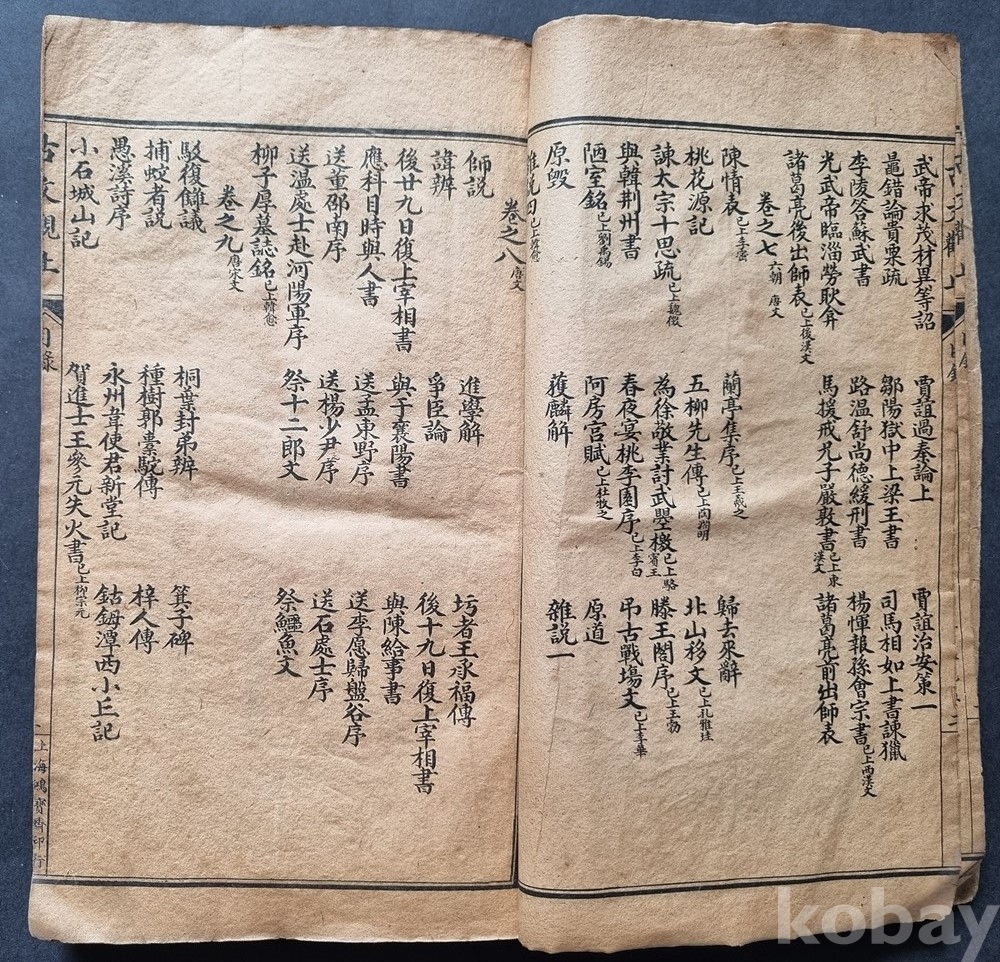 武帝求茂材異等詔 賈誼過秦論上 賈誼治安策一
鼂錯論貴粟疏 鄒陽獄中上梁王書 司馬相如上書諫獵
李陵答蘇武書 路溫舒尚德緩刑書 楊惲報孫會宗書已上西漢文
光武帝臨淄勞耿弇 馬援戒兄子嚴敦書已上東漢文 諸葛亮前出師表
諸葛亮後出師表已上後漢文
卷之七六朝 唐文
陳情表已上李密 蘭亭集序已上王羲之 歸去來辭
桃花源記 五柳先生傳已上陶淵明 北山移文已上孔稚珪
諫太宗十思疏已上魏徵 為徐敬業討武曌檄已上駱賓王 滕王閣序已上王勃
與韓荆州書 春夜宴桃李園序已上李白 弔古戰塲文已上李華
陋室銘已上劉禹錫 阿房宮賦已上杜牧之 原道
原毀 獲麟解 雜說一
雜說四已上韓愈
卷之八唐文
師説 進學解 圬者王承福傳
諱辨 爭臣論 後十九日復上宰相書
後廿九日復上宰相書 與于襄陽書 與陳給事書
應科目時與人書 送孟東野序 送李愿歸盤谷序
送董邵南序 送楊少尹序 送石處士序
送温處士赴河陽軍序 祭十二郎文 祭鱷魚文
柳子厚墓誌銘已上韓愈
卷之九唐宋文
駁復讎議 桐葉封弟辨 箕子碑
捕蛇者説 種樹郭橐駝傳 梓人傳
愚溪詩序 永州韋使君新堂記 鈷鉧潭西小丘記
小石城山記 賀進士王參元失火書已上柳宗元
古文觀止 目錄 上海鴻寶齋印行
kobay